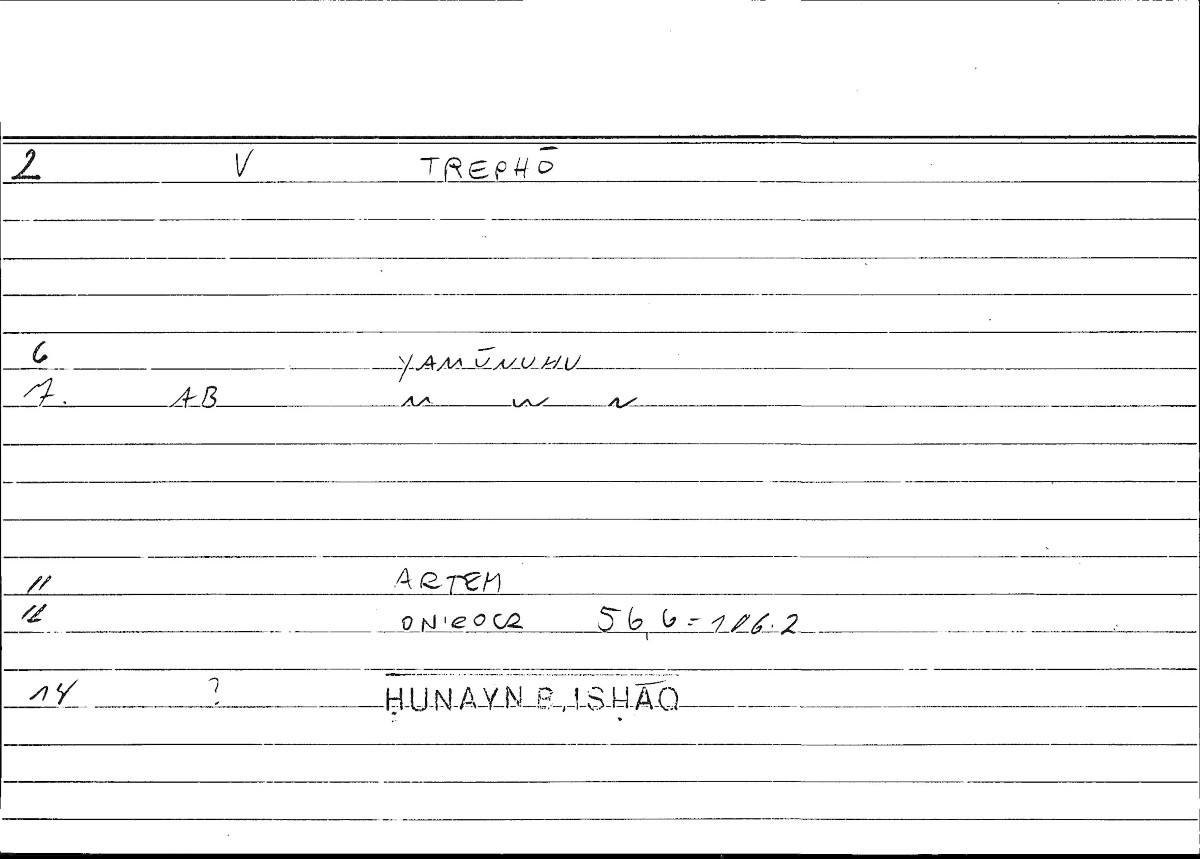 2 V TREPHŌ
6 YAMŪNUHU
7. AB
11 ARTEM
12 ONIROCR 56,6=106.2
14 ? ḤUNAYN B. ISḤĀQ